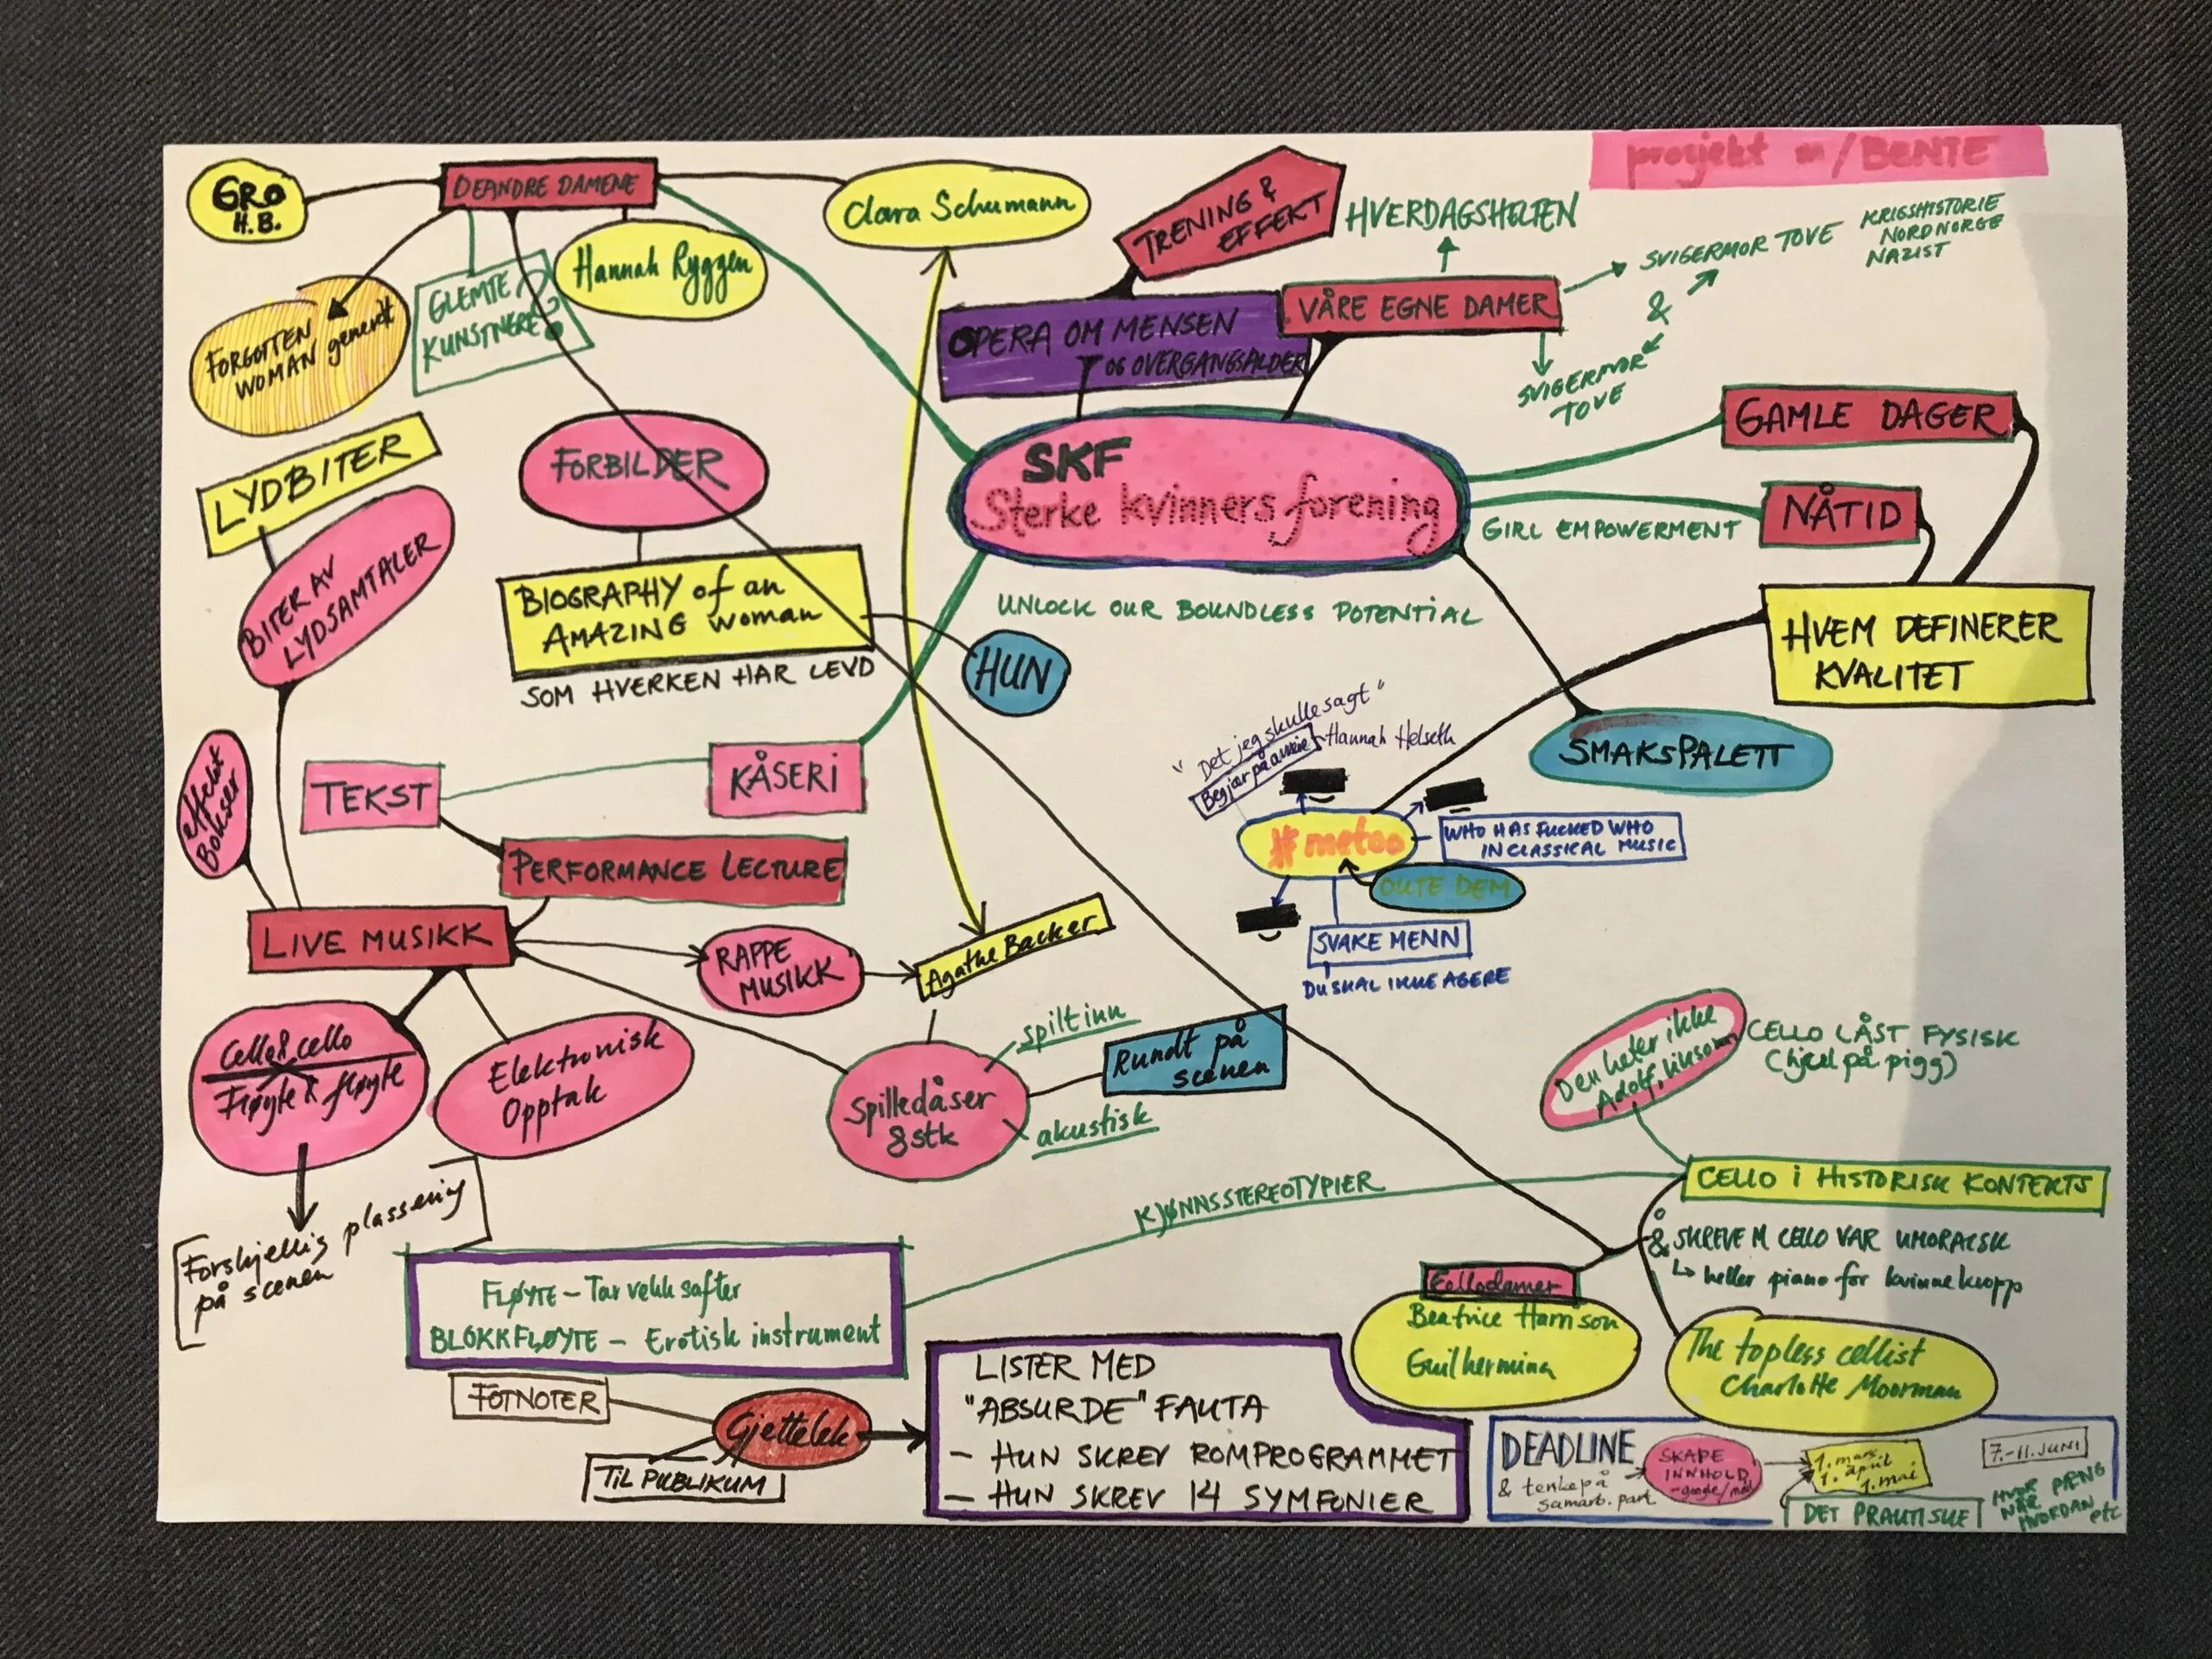 prosjekt m/BENTE
GRO
H.B.
DE ANDRE DAMENE
Clara Schumann
Hannah Ryggen
GLEMTE
KUNSTNERE?
FORGOTTEN
WOMAN generelt
TRENING &
EFFEKT
HVERDAGSHELTEN
OPERA OM MENSEN
OG OVERGANGSALDER
VÅRE EGNE DAMER
SVIGERMOR TOVE
KRIGSHISTORIE
NORDNORGE
NAZIST
&
SVIGERMOR
TOVE
SKF
Sterke kvinners forening
GAMLE DAGER
NÅTID
GIRL EMPOWERMENT
UNLOCK OUR BOUNDLESS POTENTIAL
HVEM DEFINERER
KVALITET
SMAKSPALETT
LYDBITER
BITER AV
LYDSAMTALER
FORBILDER
BIOGRAPHY of an
AMAZING woman
SOM HVERKEN HAR LEVD
HUN
TEKST
KÅSERI
effekt
Bokser
PERFORMANCE LECTURE
LIVE MUSIKK
RAPPE
MUSIKK
Agathe Backer
"Det jeg skulle sagt"
Hannah Helseth
#metoo
WHO HAS FUCKED WHO
IN CLASSICAL MUSIC
OUTE DEM
SVAKE MENN
DU SKAL IKKE AGERE
Cello & cello
Fløyte & fløyte
Elektronisk
Opptak
Spilledåser
8 stk
spilt inn
akustisk
Rundt på
scenen
Forskjellig plassering
på scenen
Den heter ikke
Adolf, liksom
CELLO LÅST FYSISK
(hjul på pigg)
CELLO I HISTORISK KONTEKTS
KJØNNSSTEREOTYPIER
Å
& SKREVE M CELLO VAR UMORALSK
↳ heller piano for kvinnekropp
Cellodamer
Beatrice Harrison
Guilhermina
The topless cellist
Charlotte Moorman
FLØYTE – Tar vekk safter
BLOKKFLØYTE – Erotisk instrument
FOTNOTER
Gjettelek
TIL PUBLIKUM
LISTER MED
"ABSURDE" FAUTA
– HUN SKREV ROMPROGRAMMET
– HUN SKREV 14 SYMFONIER
DEADLINE
& tenke på
samarb. part
SKAPE
INNHOLD
-google/
1. mars
1. april
1. mai
7.-11. JUNI
DET PRAKTISKE
HVOR PÆNG
NÅR
HVORDAN etc